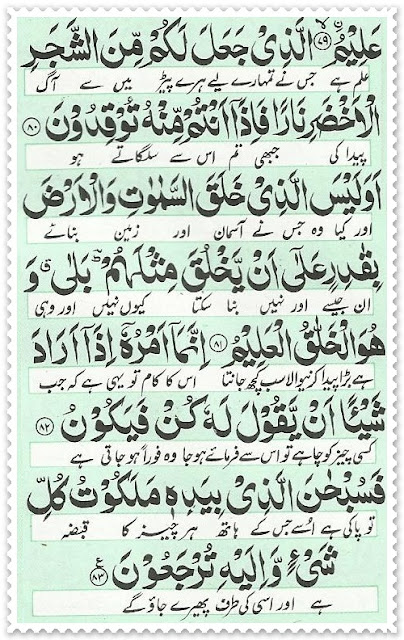 عَلِيْمُۨ ۙ﴿۷۹﴾ الَّذِىْ جَعَلَ لَكُمْ مِّنَ الشَّجَرِ
علم ہے جس نے تمہارے لیے ہرے پیڑ میں سے آگ
الْاَخْضَرِ نَارًا فَاِذَاۤ اَنْتُمْ مِّنْهُ تُوْقِدُوْنَ ﴿۸۰﴾
پیدا کی جبھی تم اس سے سلگاتے ہو
اَوَلَيْسَ الَّذِىْ خَلَقَ السَّمٰوٰتِ وَالْاَرْضَ
اور کیا وہ جس نے آسمان اور زمین بنائے
بِقٰدِرٍ عَلٰۤى اَنْ يَّخْلُقَ مِثْلَهُمْ ؔ بَلٰى ۗ وَ
ان جیسے اور نہیں بنا سکتا کیوں نہیں اور وہی
هُوَ الْخَلّٰقُ الْعَلِيْمُ ﴿۸۱﴾ اِنَّمَاۤ اَمْرُهٗۤ اِذَاۤ اَرَادَ
ہے بڑا پیدا کرنیوالا سب کچھ جانتا اس کا کام تو یہی ہے کہ جب
شَيْـًٔا اَنْ يَّقُوْلَ لَهٗ كُنْ فَيَكُوْنُ ﴿۸۲﴾
کسی چیز کو چاہے تو اس سے فرمائے ہوجا وہ فوراً ہو جاتی ہے
فَسُبْحٰنَ الَّذِىْ بِيَدِهٖ مَلَكُوْتُ كُلِّ
تو پاکی ہے اُسے جس کے ہاتھ ہر چیز کا قبضہ
شَىْءٍ وَّاِلَيْهِ تُرْجَعُوْنَ ﴿۸۳﴾ ع
ہے اور اسی کی طرف پھیرے جاؤ گے